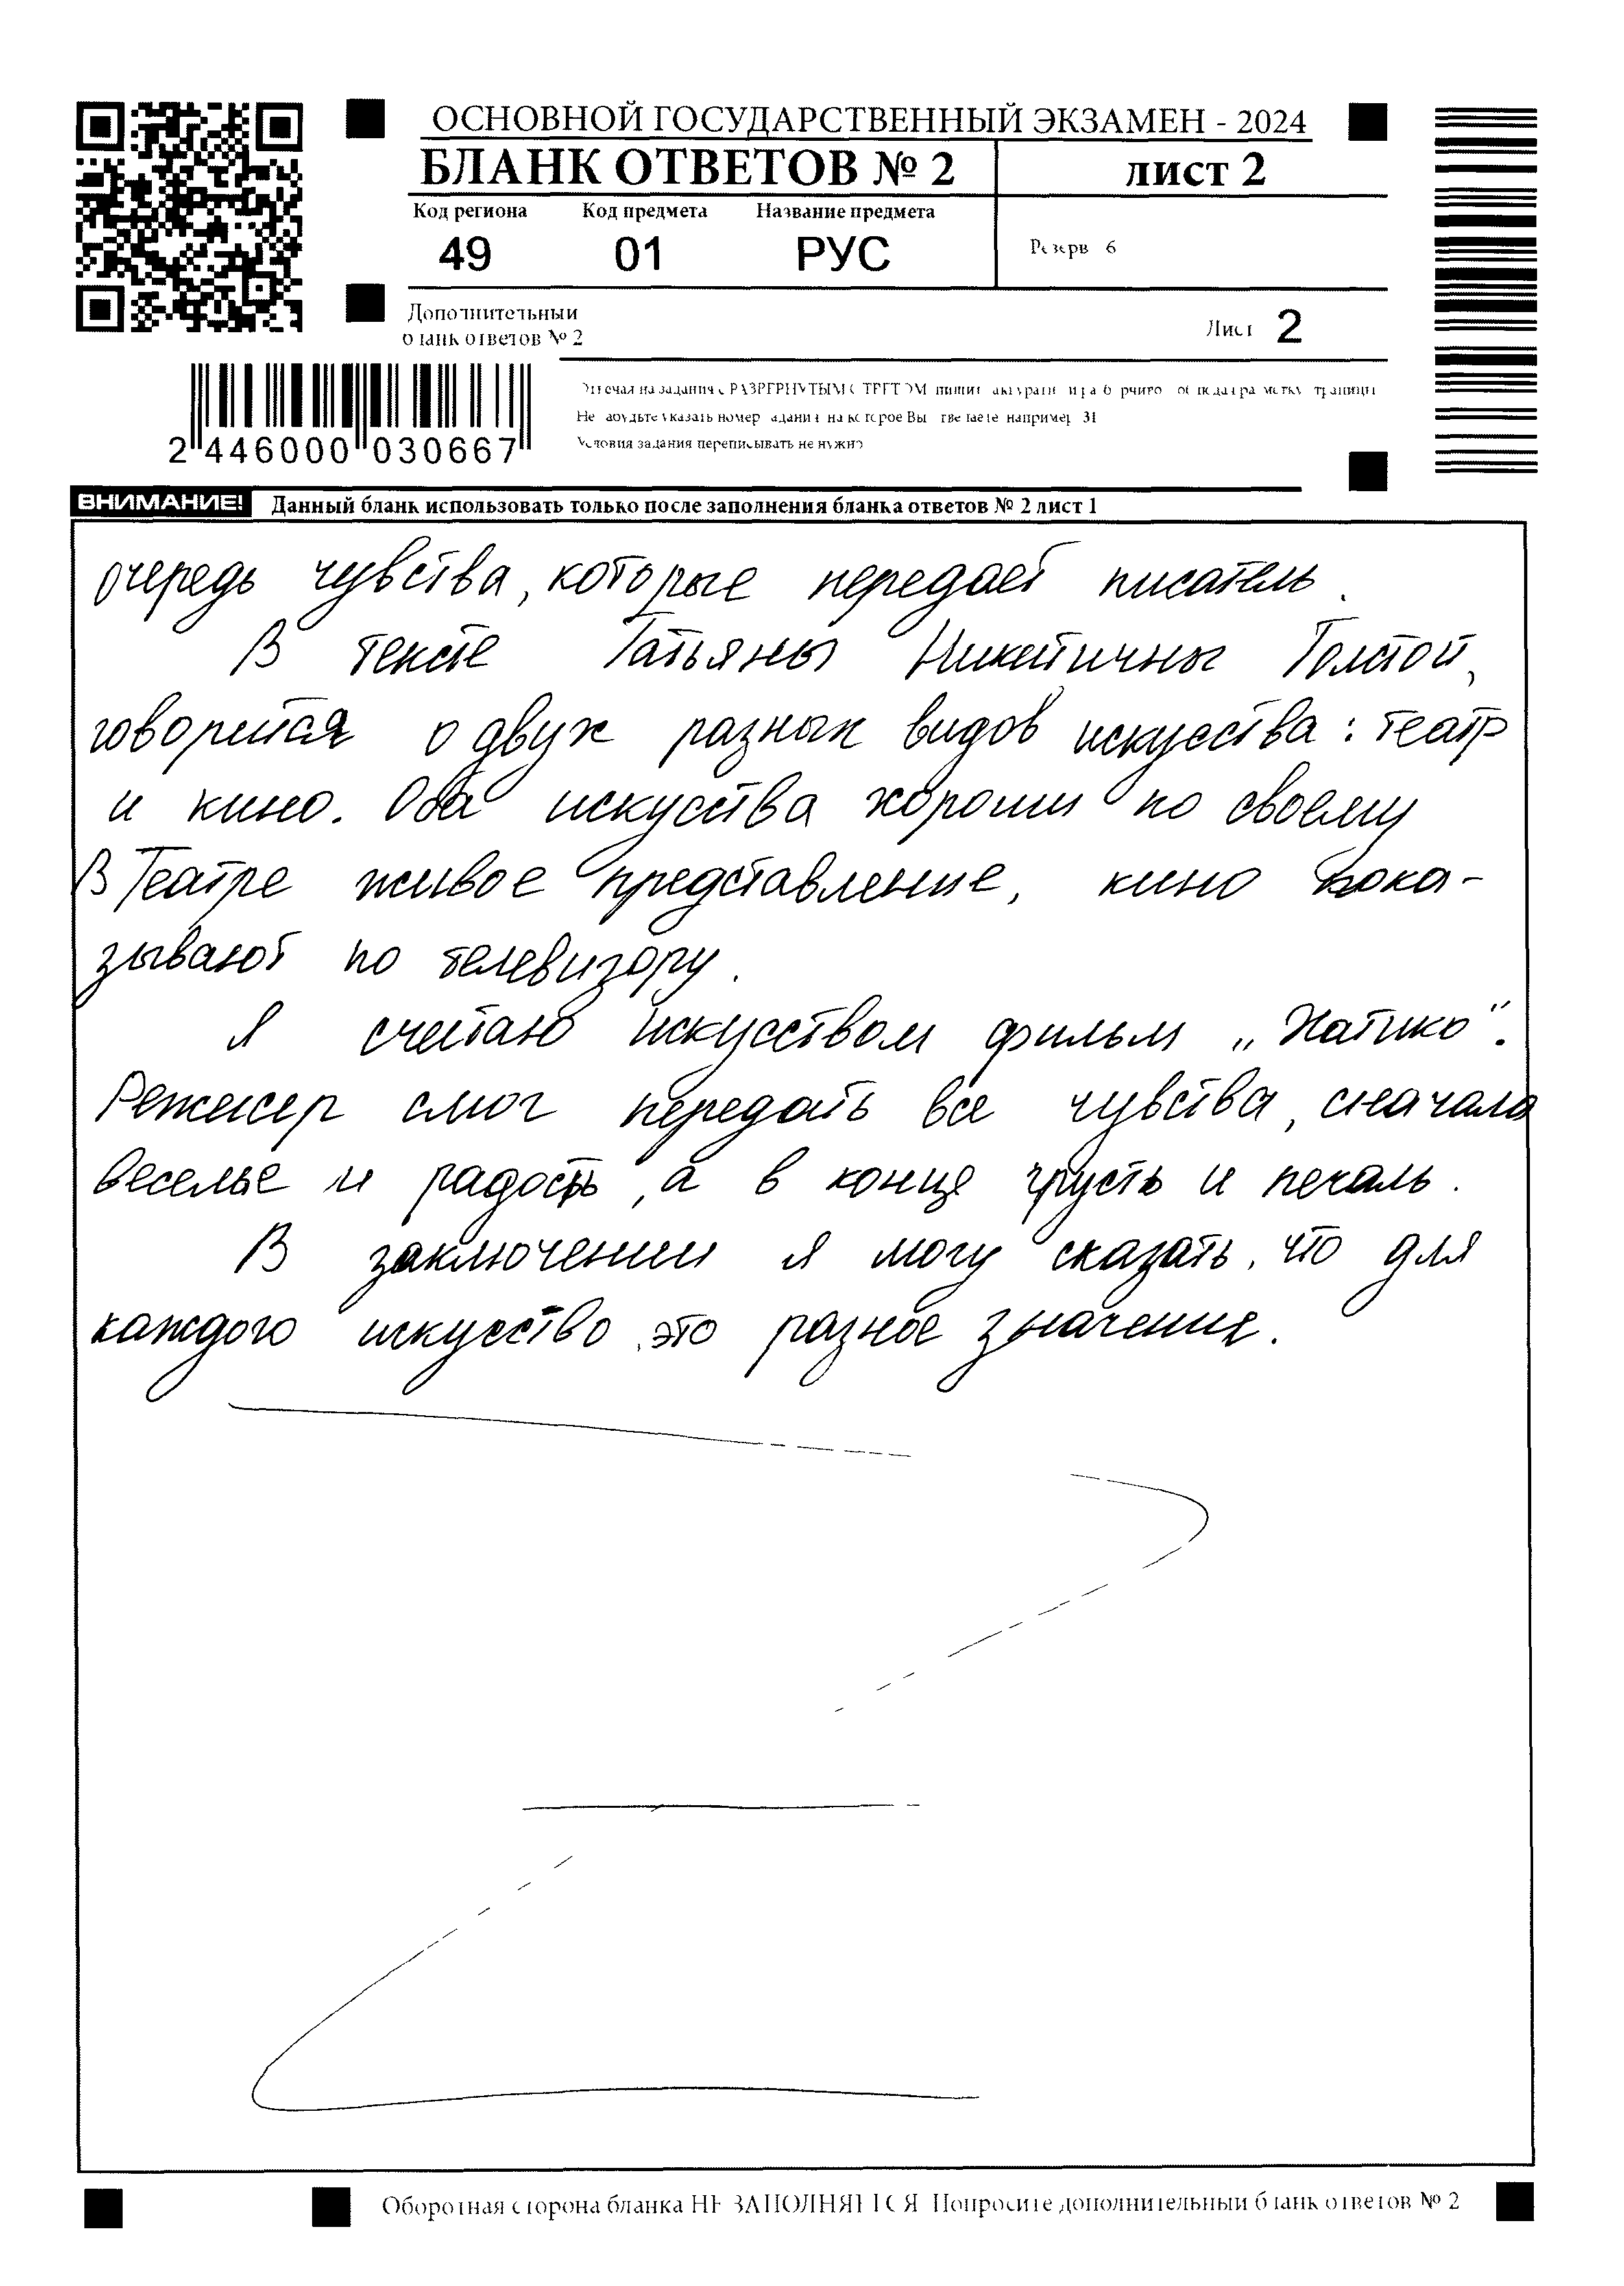 ОСНОВНОЙ ГОСУДАРСТВЕННЫЙ ЭКЗАМЕН - 2024
БЛАНК ОТВЕТОВ № 2 лист 2
Код региона Код предмета Название предмета
49 01 РУС
Резерв 6
Дополнительный
бланк ответов № 2
Лист 2
2 446000 030667
Отвечая на задания с РАЗВЕРНУТЫМ ОТВЕТОМ, пишите аккуратно и разборчиво, соблюдая разметку страницы
Не забудьте указать номер задания, на которое Вы отвечаете, например, 31
Условия задания переписывать не нужно
ВНИМАНИЕ! Данный бланк использовать только после заполнения бланка ответов № 2 лист 1
очередь чувства, которые передаёт писатель.
В тексте Татьяны Никитичны Толстой,
говорится о двух разных видов искусства: театр
и кино. Оба искуства хороши по своему
В Театре живое представление, кино пока-
зывают по телевизору.
Я считаю искусством фильм „Хатико".
Режисер смог передать все чувства, сначала
веселье и радость, а в конце грусть и печаль.
В заключении я могу сказать, что для
каждого искусство, это разное значение.
Оборотная сторона бланка НЕ ЗАПОЛНЯЕТСЯ Попросите дополнительный бланк ответов № 2